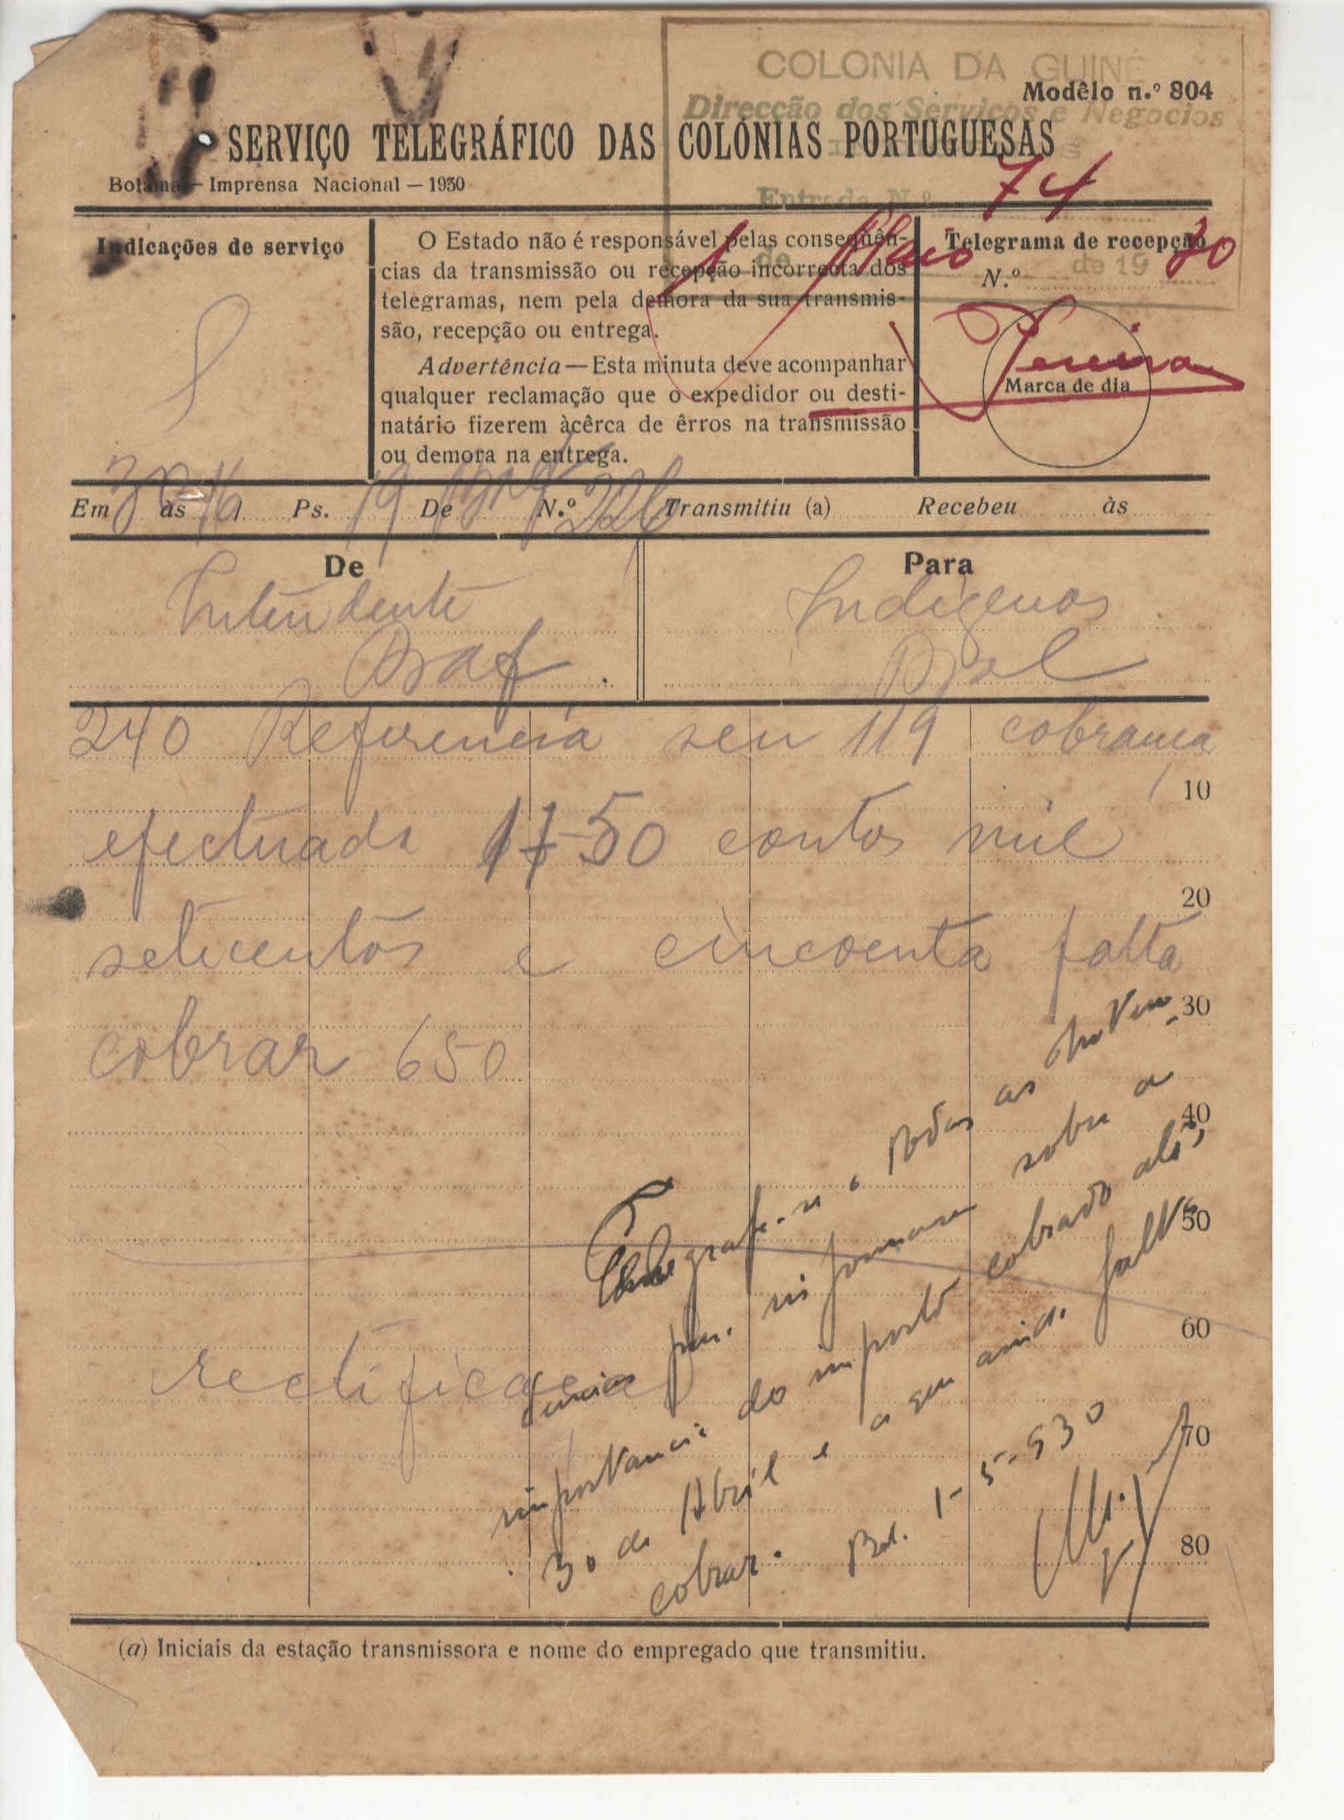 COLONIA DA GUINÉ
Direcção dos Serviços e Negocios
Modêlo n.º 804
SERVIÇO TELEGRÁFICO DAS COLÓNIAS PORTUGUESAS
Bolama — Imprensa Nacional — 1930
Entrada N.º 74
1 de Maio de 1930
Pereira
Indicações de serviço
O Estado não é responsável pelas consequên-
cias da transmissão ou recepção incorrecta dos
telegramas, nem pela demora da sua transmis-
são, recepção ou entrega.
Advertência — Esta minuta deve acompanhar
qualquer reclamação que o expedidor ou desti-
natário fizerem àcêrca de êrros na transmissão
ou demora na entrega.
Telegrama de recepção
N.º
Marca de dia
Em 30 às 16 Ps. 19 De N.º 226 Transmitiu (a) Recebeu às
De
Intendente
Baf.
Para
Indigenas
Bol
240 Referencia seu 119 cobrança
10
efectuada 1750 contos mil
20
setecentos e cincoenta falta
30
cobrar 650
40
50
60
rectificação
70
80
Telegrafe-se a todas as Inten-
dencias para informarem sobre a
importancia do imposto cobrado até
30 de Abril e a que ainda falta
cobrar. Bol. 1-5-930
(a) Iniciais da estação transmissora e nome do empregado que transmitiu.